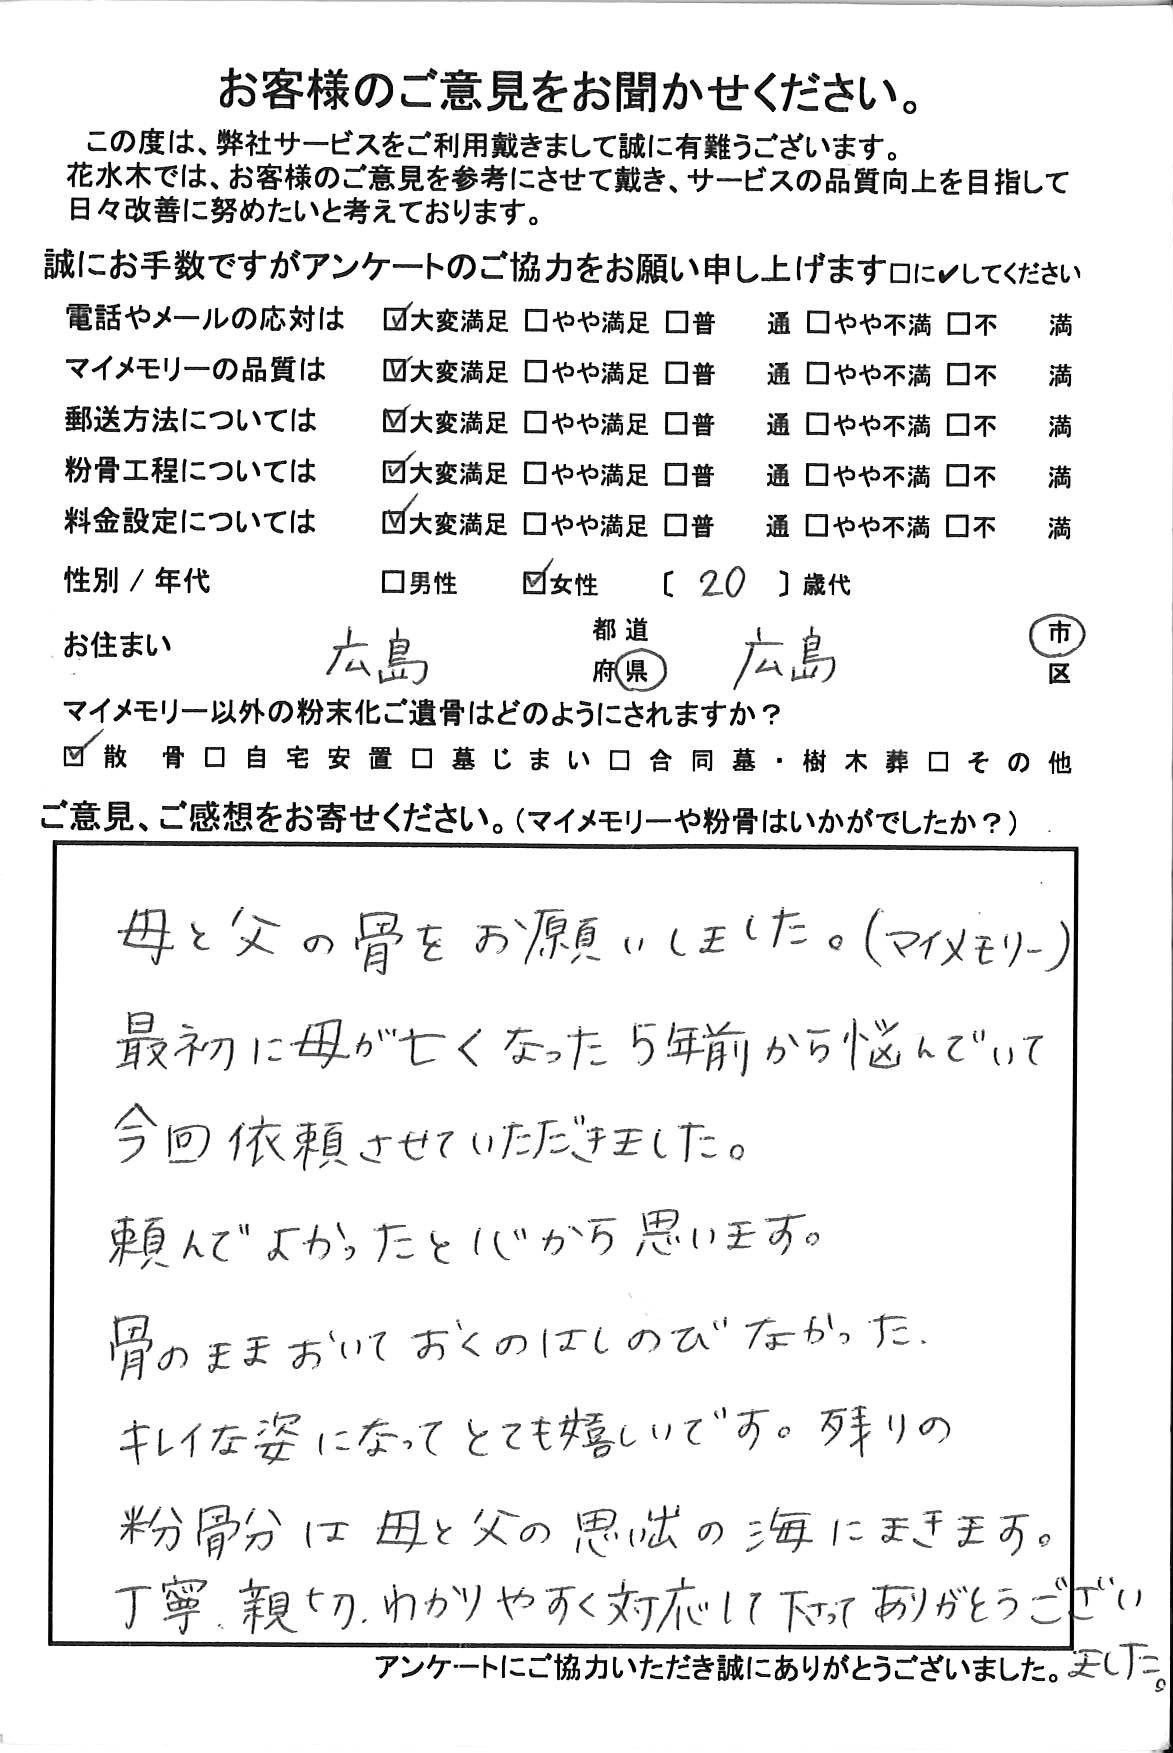 お客様のご意見をお聞かせください。
この度は、弊社サービスをご利用戴きまして誠に有難うございます。
花水木では、お客様のご意見を参考にさせて戴き、サービスの品質向上を目指して
日々改善に努めたいと考えております。
誠にお手数ですがアンケートのご協力をお願い申し上げます□に✔してください
電話やメールの応対は ☑大変満足 □やや満足 □普 通 □やや不満 □不 満
マイメモリーの品質は ☑大変満足 □やや満足 □普 通 □やや不満 □不 満
郵送方法については ☑大変満足 □やや満足 □普 通 □やや不満 □不 満
粉骨工程については ☑大変満足 □やや満足 □普 通 □やや不満 □不 満
料金設定については ☑大変満足 □やや満足 □普 通 □やや不満 □不 満
性別 / 年代 □男性 ☑女性 〔 20 〕歳代
お住まい 広島 都道府県 広島 市区
マイメモリー以外の粉末化ご遺骨はどのようにされますか？
☑散 骨 □自宅安置 □墓じまい □合同墓・樹木葬 □その他
ご意見、ご感想をお寄せください。（マイメモリーや粉骨はいかがでしたか？）
母と父の骨をお願いしました。(マイメモリー)
最初に母が亡くなった5年前から悩んでいて
今回依頼させていただきました。
頼んでよかったと心から思います。
骨のままおいておくのはしのびなかった、
キレイな姿になってとても嬉しいです。残りの
粉骨分は母と父の思い出の海にまきます。
丁寧、親切、わかりやすく対応して下さってありがとうござい
ました。
アンケートにご協力いただき誠にありがとうございました。